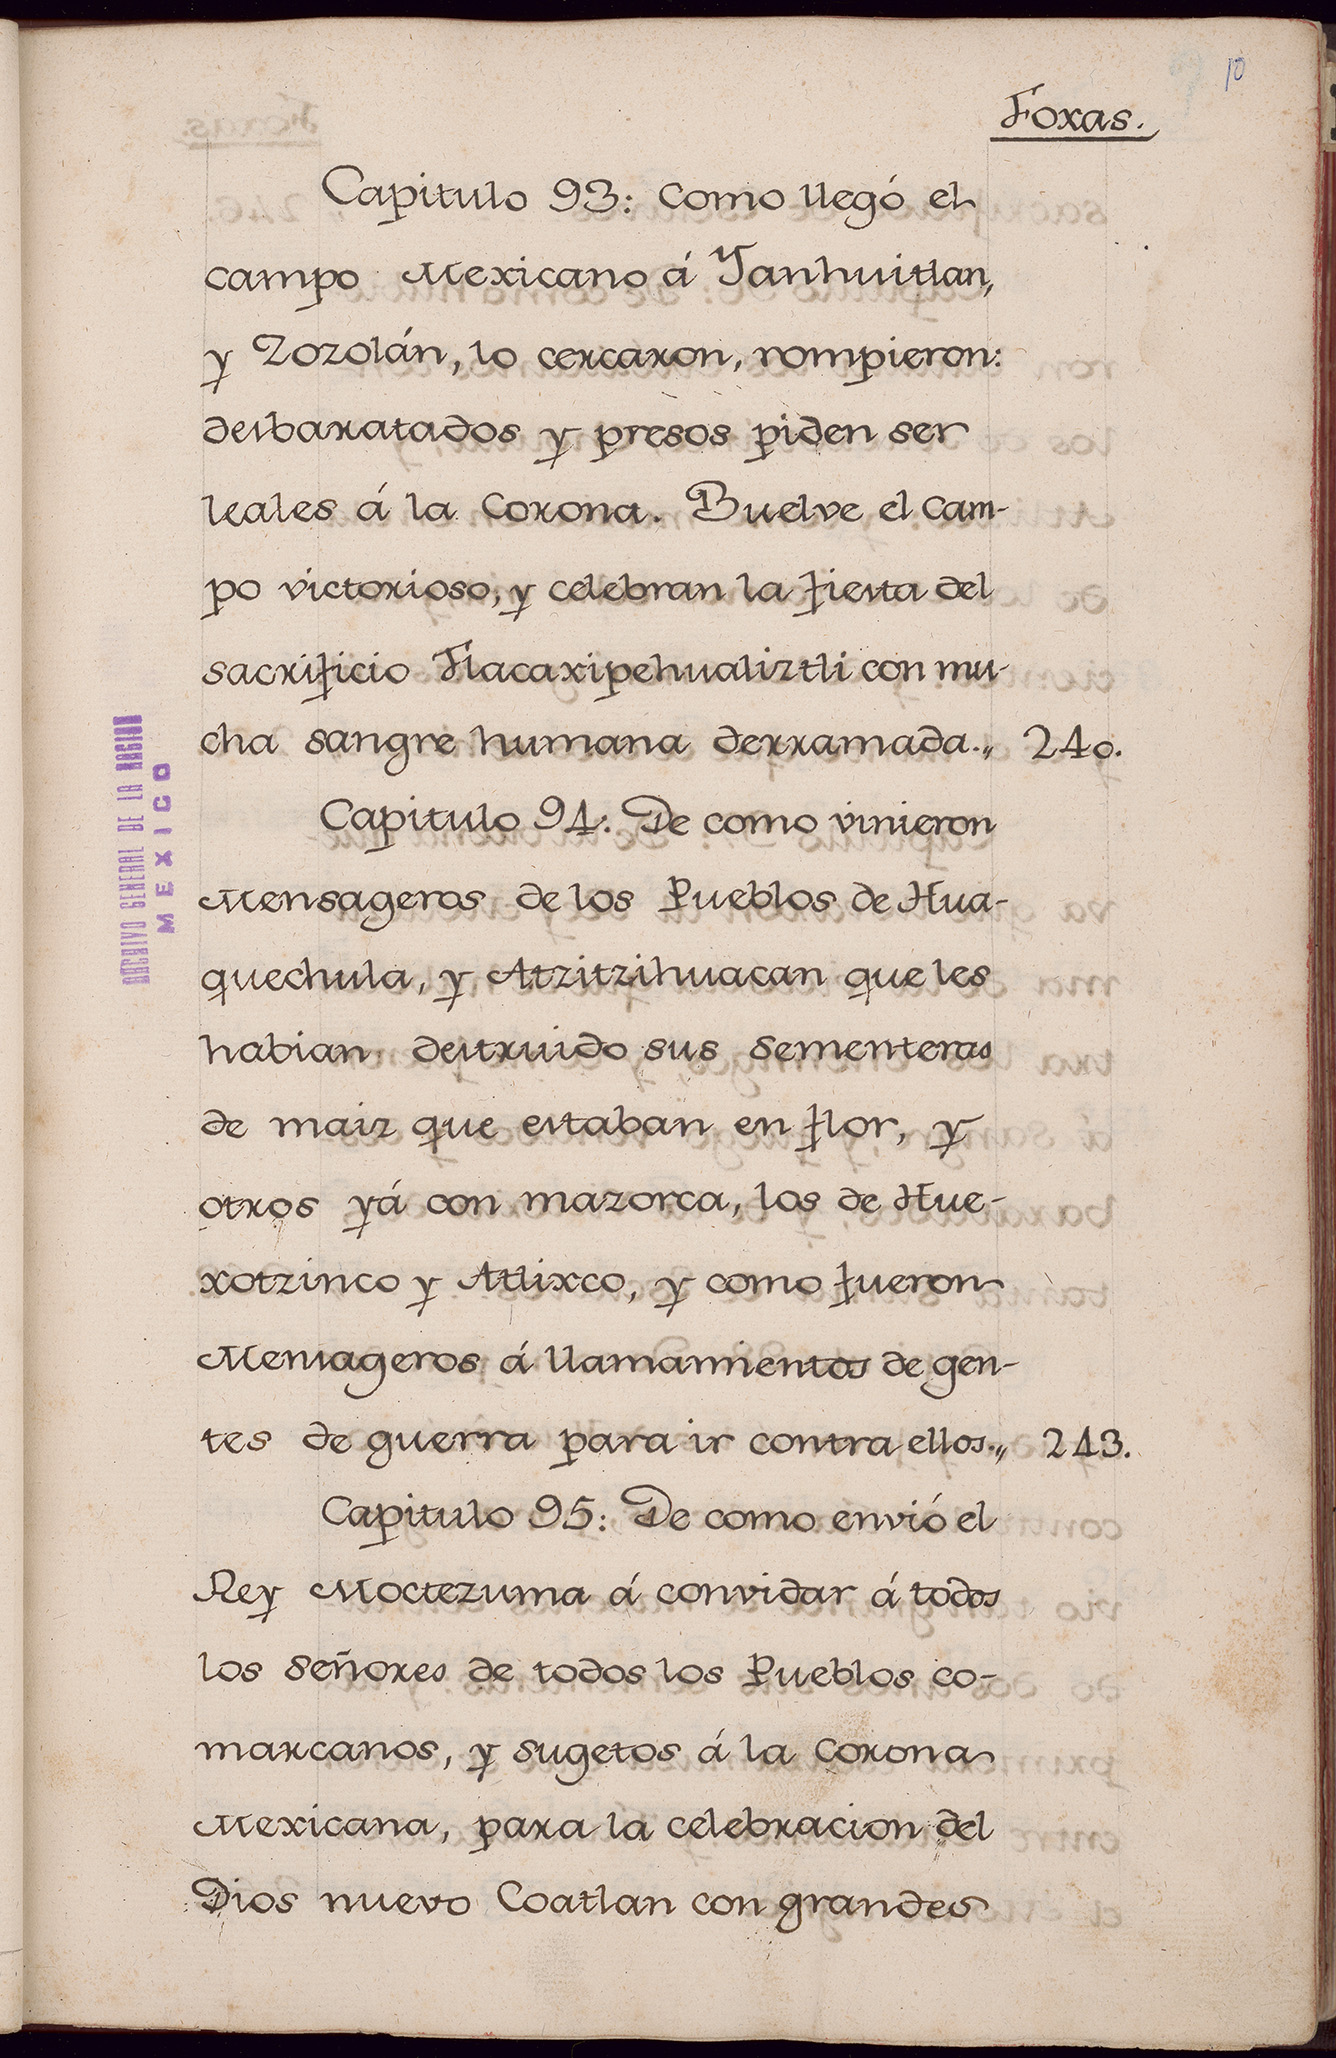 10
Foxas.
Capitulo 93: Como llegó el
campo Mexicano á Yanhuitlan,
y Zozolán, lo cercaron, rompieron:
desbaratados y presos piden ser
leales á la Corona. Buelve el Cam-
po victorioso, y celebran la fiesta del
sacrificio Tlacaxipehualiztli con mu-
cha sangre humana derramada.,, 240.
Capitulo 94: De como vinieron
Mensageros de los Pueblos de Hua-
quechula, y Atzitzihuacan que les
habian destruido sus sementeras
de maiz que estaban en flor, y
otros yá con mazorca, los de Hue-
xotzinco y Atlixco, y como fueron
Mensageros á llamamientos de gen-
tes de guerra para ir contra ellos.,, 243.
Capitulo 95: De como envió el
Rey Moctezuma á convidar á todos
los señores de todos los Pueblos co-
marcanos, y sugetos á la Corona
Mexicana, para la celebracion del
Dios nuevo Coatlan con grandes
ARCHIVO GENERAL DE LA NACION
MEXICO